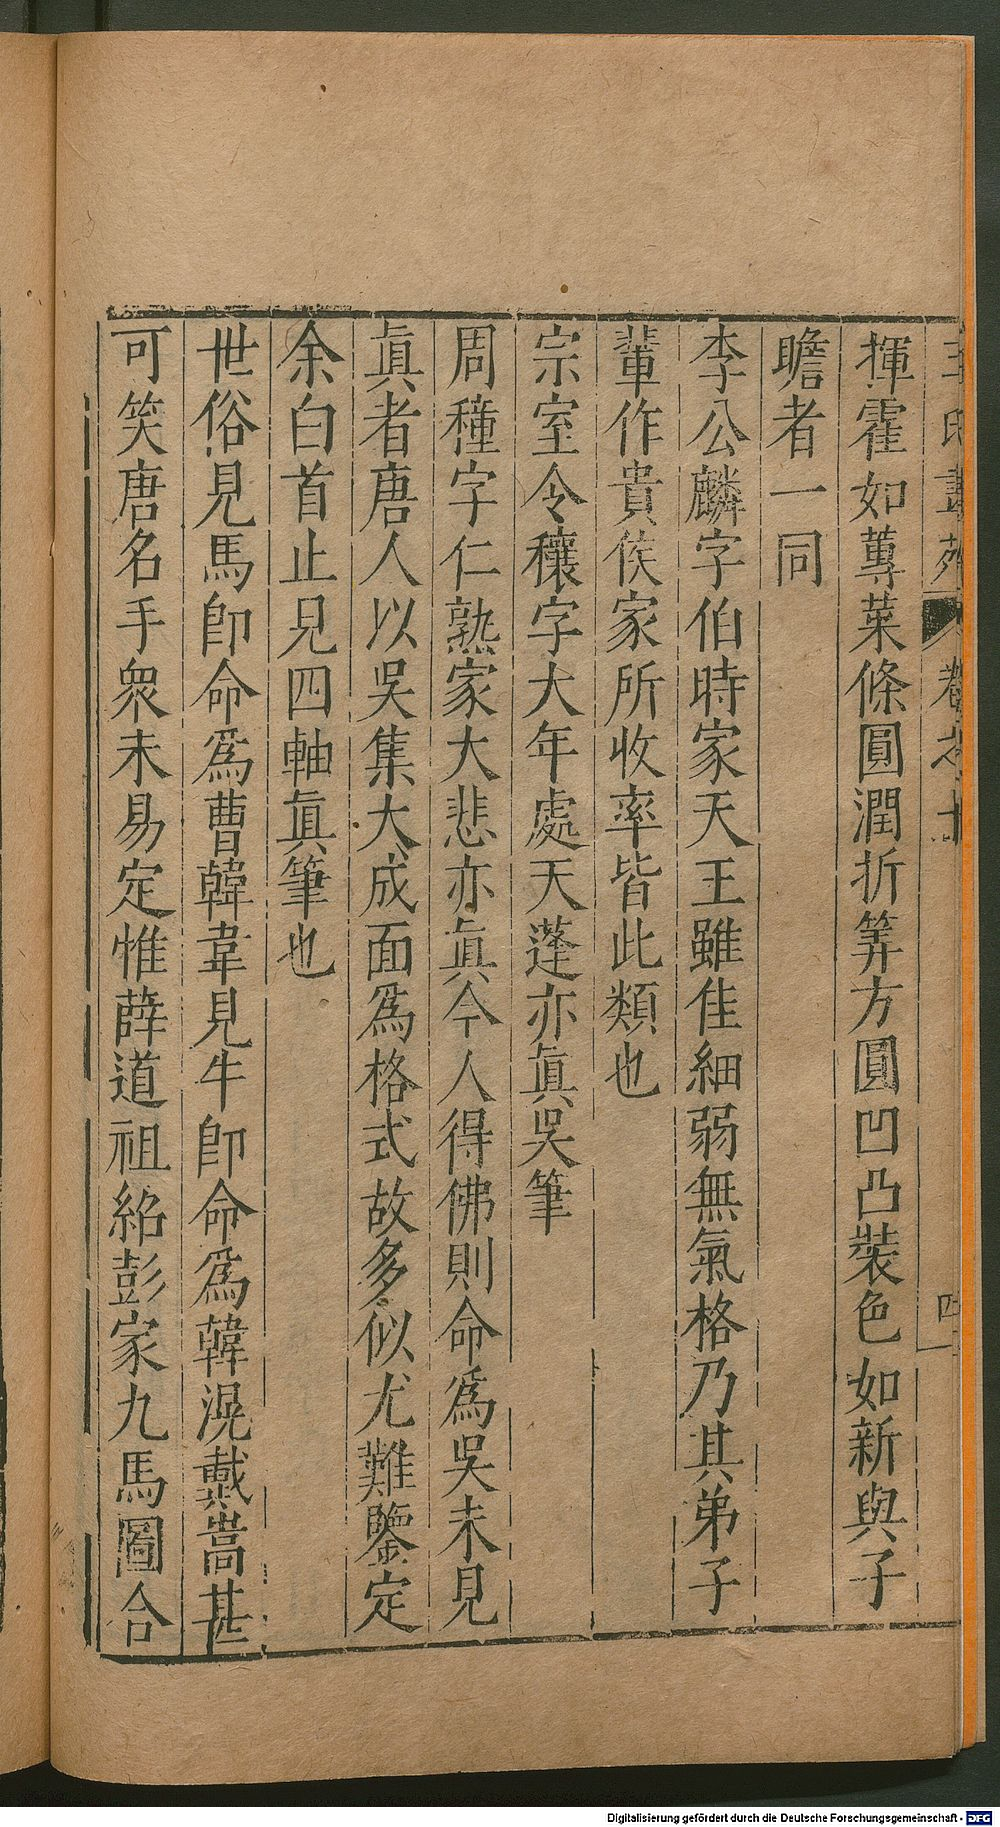 王氏畫苑 卷之十 四
揮霍如蓴菜條圓潤折筭方圓凹凸裝色如新與子
瞻者一同
李公麟字伯時家天王雖佳細弱無氣格乃其弟子
輩作貴矦家所收率皆此類也
宗室令穰字大年處天蓬亦眞吳筆
周穜字仁熟家大悲亦眞今人得佛則命爲吳未見
眞者唐人以吳集大成面爲格式故多似尤難鑒定
余白首止見四軸眞筆也
世俗見馬卽命爲曹韓韋見牛卽命爲韓滉戴嵩甚
可笑唐名手衆未易定惟薛道祖紹彭家九馬圖合
Digitalisierung gefördert durch die Deutsche Forschungsgemeinschaft - DFG